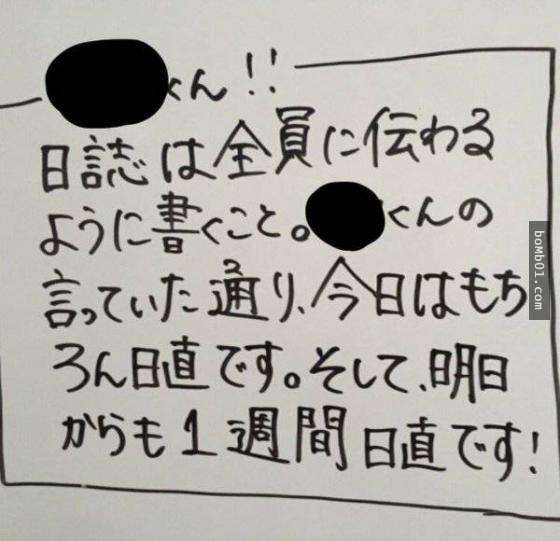 くん!!
日誌は全員に伝わる
ように書くこと。くんの
言っていた通り、今日はもち
ろん日直です。そして、明日
からも1週間日直です!
bomb01.com